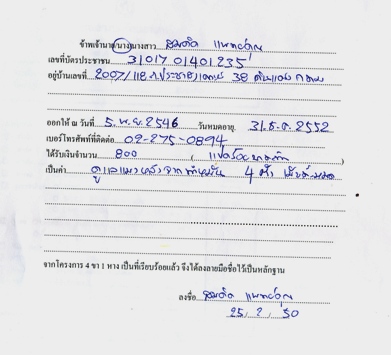 ข้าพเจ้านาย/นาง/นางสาว สมคิด แพทย์คุณ
เลขที่บัตรประชาชน 31017 01401235
อยู่บ้านเลขที่ 2007/118 38 ดินแดง กทม
ออกให้ ณ วันที่ 5.พ.ย.2546 วันหมดอายุ 31.ธ.ค.2552
เบอร์โทรศัพท์ที่ติดต่อ 02-275-0894
ได้รับเงินจำนวน 800 (แปดร้อยบาทถ้วน)
เป็นค่า ดูแลแมวหลังจากทำหมัน 4 ตัว
จากโครงการ 4 ขา 1 หาง เป็นที่เรียบร้อยแล้ว จึงได้ลงลายมือชื่อไว้เป็นหลักฐาน
ลงชื่อ สมคิด แพทย์คุณ
25/2/50